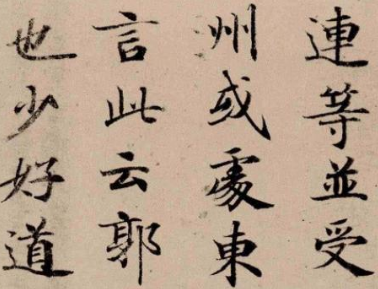 連等並受
州或處東
言此云郭
也少好道